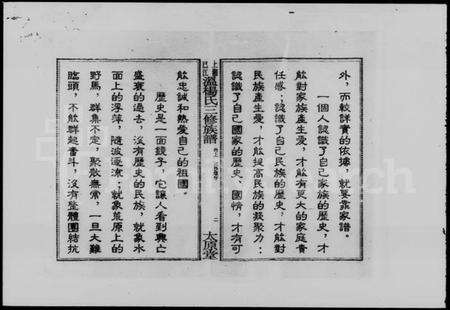 外，而較詳實的依據，就要靠家譜。
一個人認識了自己家族的歷史，才
能對家族產生愛，才能有更大的家庭責
任感；認識了自己民族的歷史，才能對
民族產生愛，才能提高民族的凝聚力；
認識了自己國家的歷史、國情，才有可
溫楊氏三修族譜
太原堂
能忠誠和熱愛自己的祖國。
歷史是一面鏡子，它讓人看到興亡
盛衰的過去，沒有歷史的民族，就象水
面上的浮萍，隨波逐流；就象荒原上的
野馬，群集不定，聚散無常，一旦大難
臨頭，不能群起奮斗，沒有整體團結抗